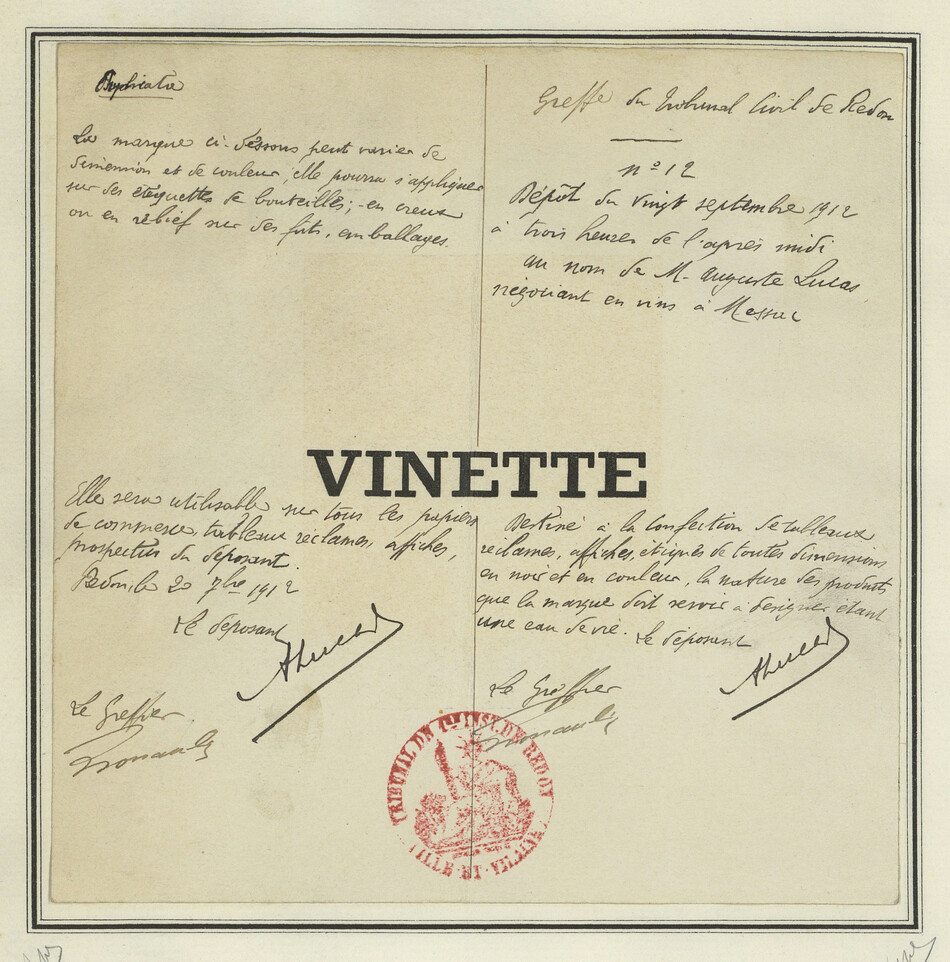 Duplicata
La marque ci-dessous peut varier de
dimension et de couleur, elle pourra s'appliquer
sur des étiquettes de bouteilles; en creux
ou en relief sur des futs, emballages.
Greffe du Tribunal Civil de Redon
n° 12
Dépôt du vingt septembre 1912
à trois heures de l'après midi
au nom de M. Auguste Lucas
négociant en vins à Messac
VINETTE
Elle sera utilisable sur tous les papiers
de commerce, tableaux réclames, affiches,
prospectus du déposant.
Redon, le 20 7bre 1912
Le déposant
ALucas
Le Greffier
Destiné à la confection de tableaux
réclames, affiches, étiqués de toutes dimensions
en noir et en couleur, la nature des produits
que la marque doit servir à designer étant
une eau de vie. Le déposant
ALucas
Le Greffier
TRIBUNAL DE 1re INST. DE REDON
ILLE-ET-VILAINE